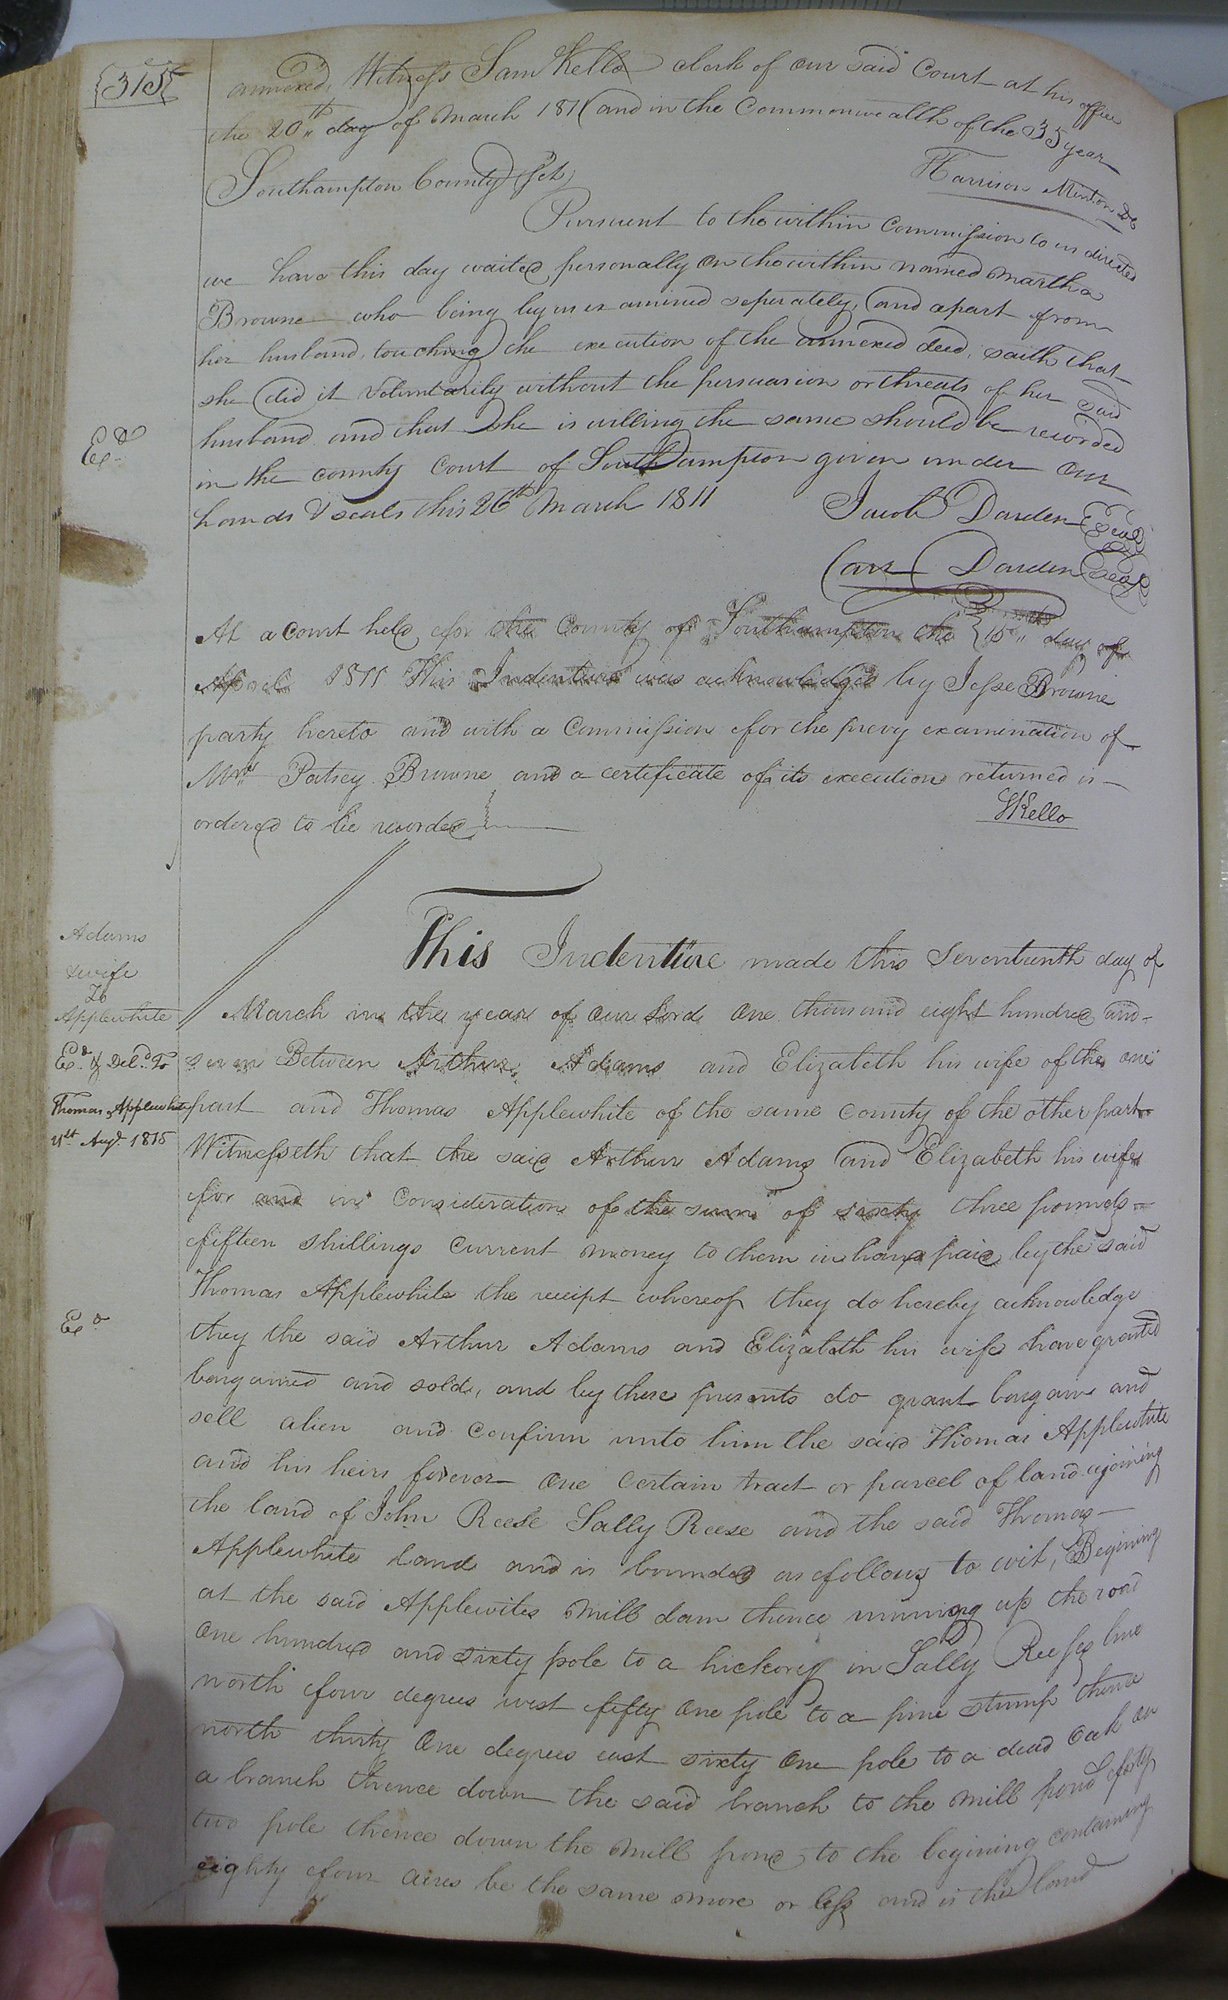 315
annexed, Witness Sam Kello clerk of our said Court at his office
the 20th day of March 1811 and in the Commonwealth of the 35 year
Harrison Minton DC
Southampton County Sct,
Pursuent to the within Commission to us directed
we have this day waited personally on the within named Martha
Browne who being by us examined seperately, and apart from
her husband, touching the execution of the annexed deed, saith that
she did it voluntarily without the persuasion or threats of her said
husband and that she is willing the same should be recorded
in the county Court of Southampton given under our
hands & seals this 26th March 1811
Exd
Jacob Darden Seal
Carr Darden Seal
At a Court held for the County of Southampton the 15th day of
April 1811 This Indenture was acknowledged by Jesse Browne
party hereto and with a Commission for the prevy examination of
Mrs Patsey Browne and a certificate of its execution returned is
ordered to be recorded
SKello
Adams
& wife
To
Applewhite
Exd & Deld To
Thomas Applewhite
21st Augt 1815
This Indenture made this Seventeenth day of
March in the year of our Lord One thousand eight hundred and
seven Between Arthur Adams and Elizabeth his wife of the one
part and Thomas Applewhite of the same County of the other part
Witnesseth that the said Arthur Adams and Elizabeth his wife
for and in Consideration of the sum of sixty three pounds
fifteen shillings Current money to them in hand paid by the said
Thomas Applewhite the receipt whereof they do hereby acknowledge
Exd
they the said Arthur Adams and Elizabeth his wife have granted
bargained and sold, and by these presents do grant bargain and
sell alien and Confirm unto him the said Thomas Applewhite
and his heirs forever One Certain tract or parcel of land ajoining
the land of John Reese Sally Reese and the said Thomas
Applewhite land and is bounded as follows to wit, Begining
at the said Applewites Mill dam thence running up the road
One hundred and sixty pole to a hickory in Sally Reeses line
north four degrees west fifty One pole to a pine stump thence
north thirty One degrees east sixty One pole to a dead Oak on
a branch thence down the said branch to the Mill pond forty
two pole thence down the Mill pond to the begining containing
eighty four acres be the same more or less and is the land